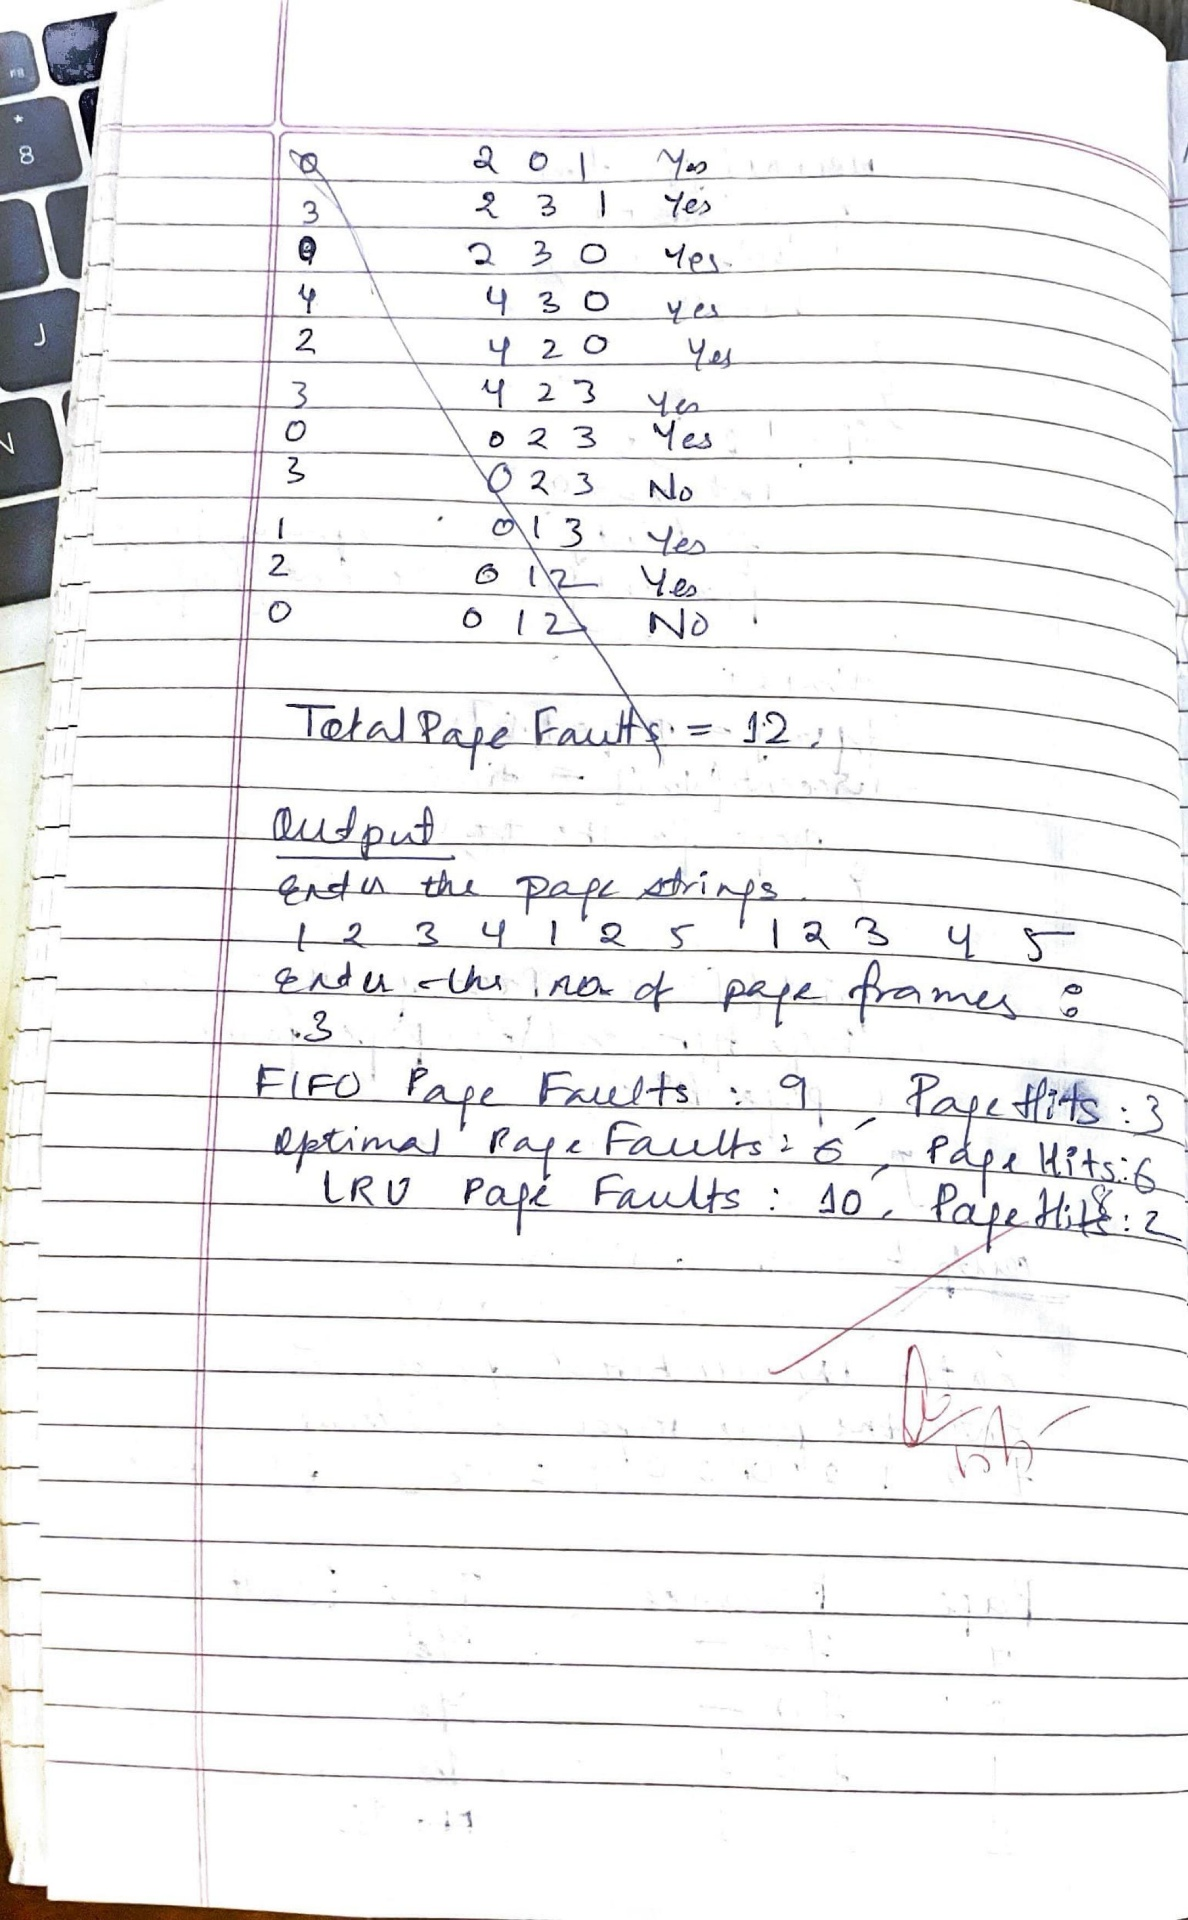 0 2 0 1 Yes
3 2 3 1 Yes
0 2 3 0 Yes
4 4 3 0 yes
2 4 2 0 Yes
3 4 2 3 Yes
0 0 2 3 Yes
3 0 2 3 No
1 0 1 3 Yes
2 0 1 2 Yes
0 0 1 2 NO
Total Page Faults = 12.
Output
Enter the page strings
1 2 3 4 1 2 5 1 2 3 4 5
Enter the no. of page frames :
3
FIFO Page Faults : 9, Page Hits : 3
Optimal Page Faults : 6, Page Hits : 6
LRU Page Faults : 10, Page Hits : 2
F8
*
8
J
N